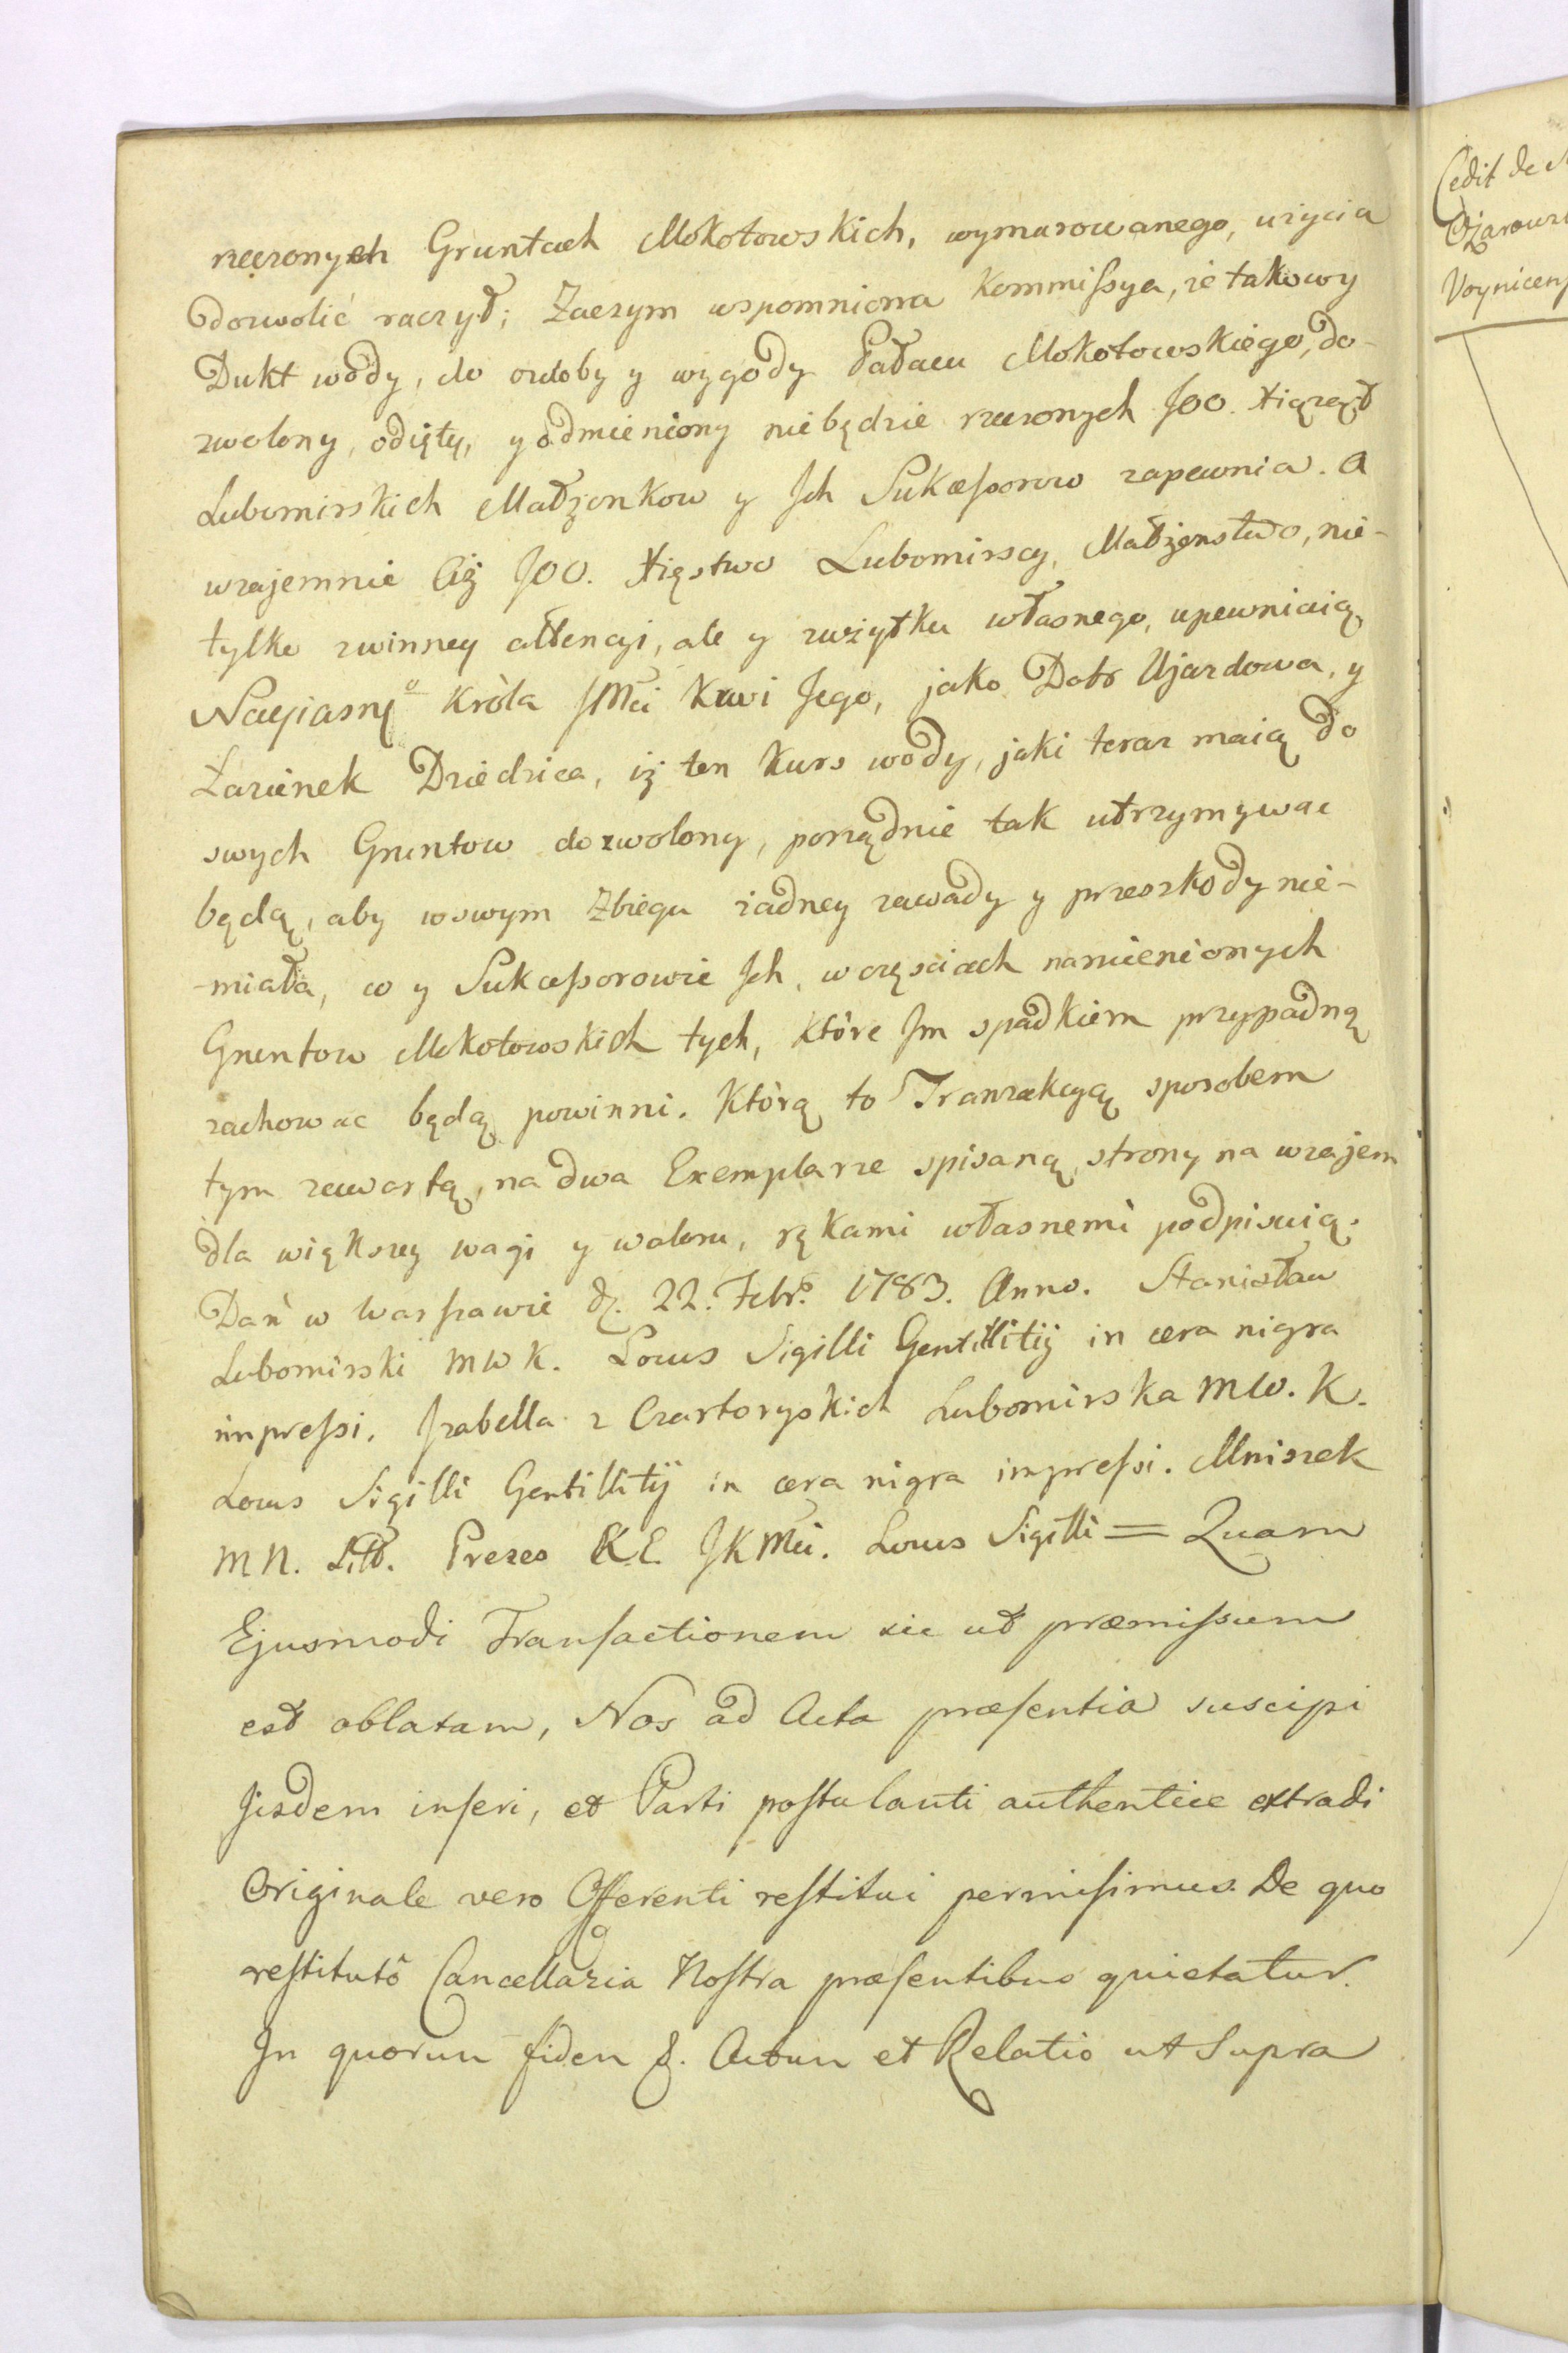 rzeczonych Gruntach Mokotowskich, wymurowanego, użycia
dozwolić raczył; Zaczym wspomniona Kommissya, że takowy
Dukt wody, do ozdoby y wygody Pałacu Mokotowskiego, do-
zwolony, odięty, y odmieniony niebędzie rzeczonych JOO. Xiążąt
Lubomirskich Małżonkow y Ich Sukcessorow zapewnia. A
wzajemnie Ciż JOO. Xięstwo Lubomirscy, Małżeństwo, nie-
tylko zwinney attencyi, ale y zużytku własnego, upewniaią
Nayiasng̊ Króla JMći Krwi Jego, jako Dobr Ujazdowa, y
Łazienek Dziedzica, iż ten Kurs wody, jaki teraz maią do
swych Gruntow dozwolony, porządnie tak utrzymywac
będą, aby wswym Zbiegu żadney zawady y przeszkody nie-
-miała, co y Sukcessorowie Ich, wczęsciach namienionych
Gruntow Mokotowskich tych, które Im spadkiem przypadną
zachowac będą powinni. Którą to Tranzakcyą sposobem
tym zawartą, na dwa Exemplarze spisaną, strony na wzajem
dla większey wagi y waloru, rękami własnemi podpisuią.
Dań w Warszawie d. 22. Febr. 1783. Anno. Stanisław
Lubomirski MWK. Locus Sigilli Gentillitij in cera nigra
impressi. Izabella z Czartoryskich Lubomirska MW. K.
Locus Sigilli Gentillitij in cera nigra impressi. Mniszek
MN. Litt. Prezes K.E. JKMći. Locus Sigilli = Quam
Ejusmodi Transactionem sic ut præmissum
est oblatam, Nos ad Acta præsentia suscipi
Iisdem inseri, et Parti postulanti authentice extradi
Originale vero Offerenti restitui permisimus. De quo
restitutô Cancellaria Nostra præsentibus quietatur.
In quorum fidem &. Actum et Relatio ut Supra
Cedit de
Ożarows
Voynicens